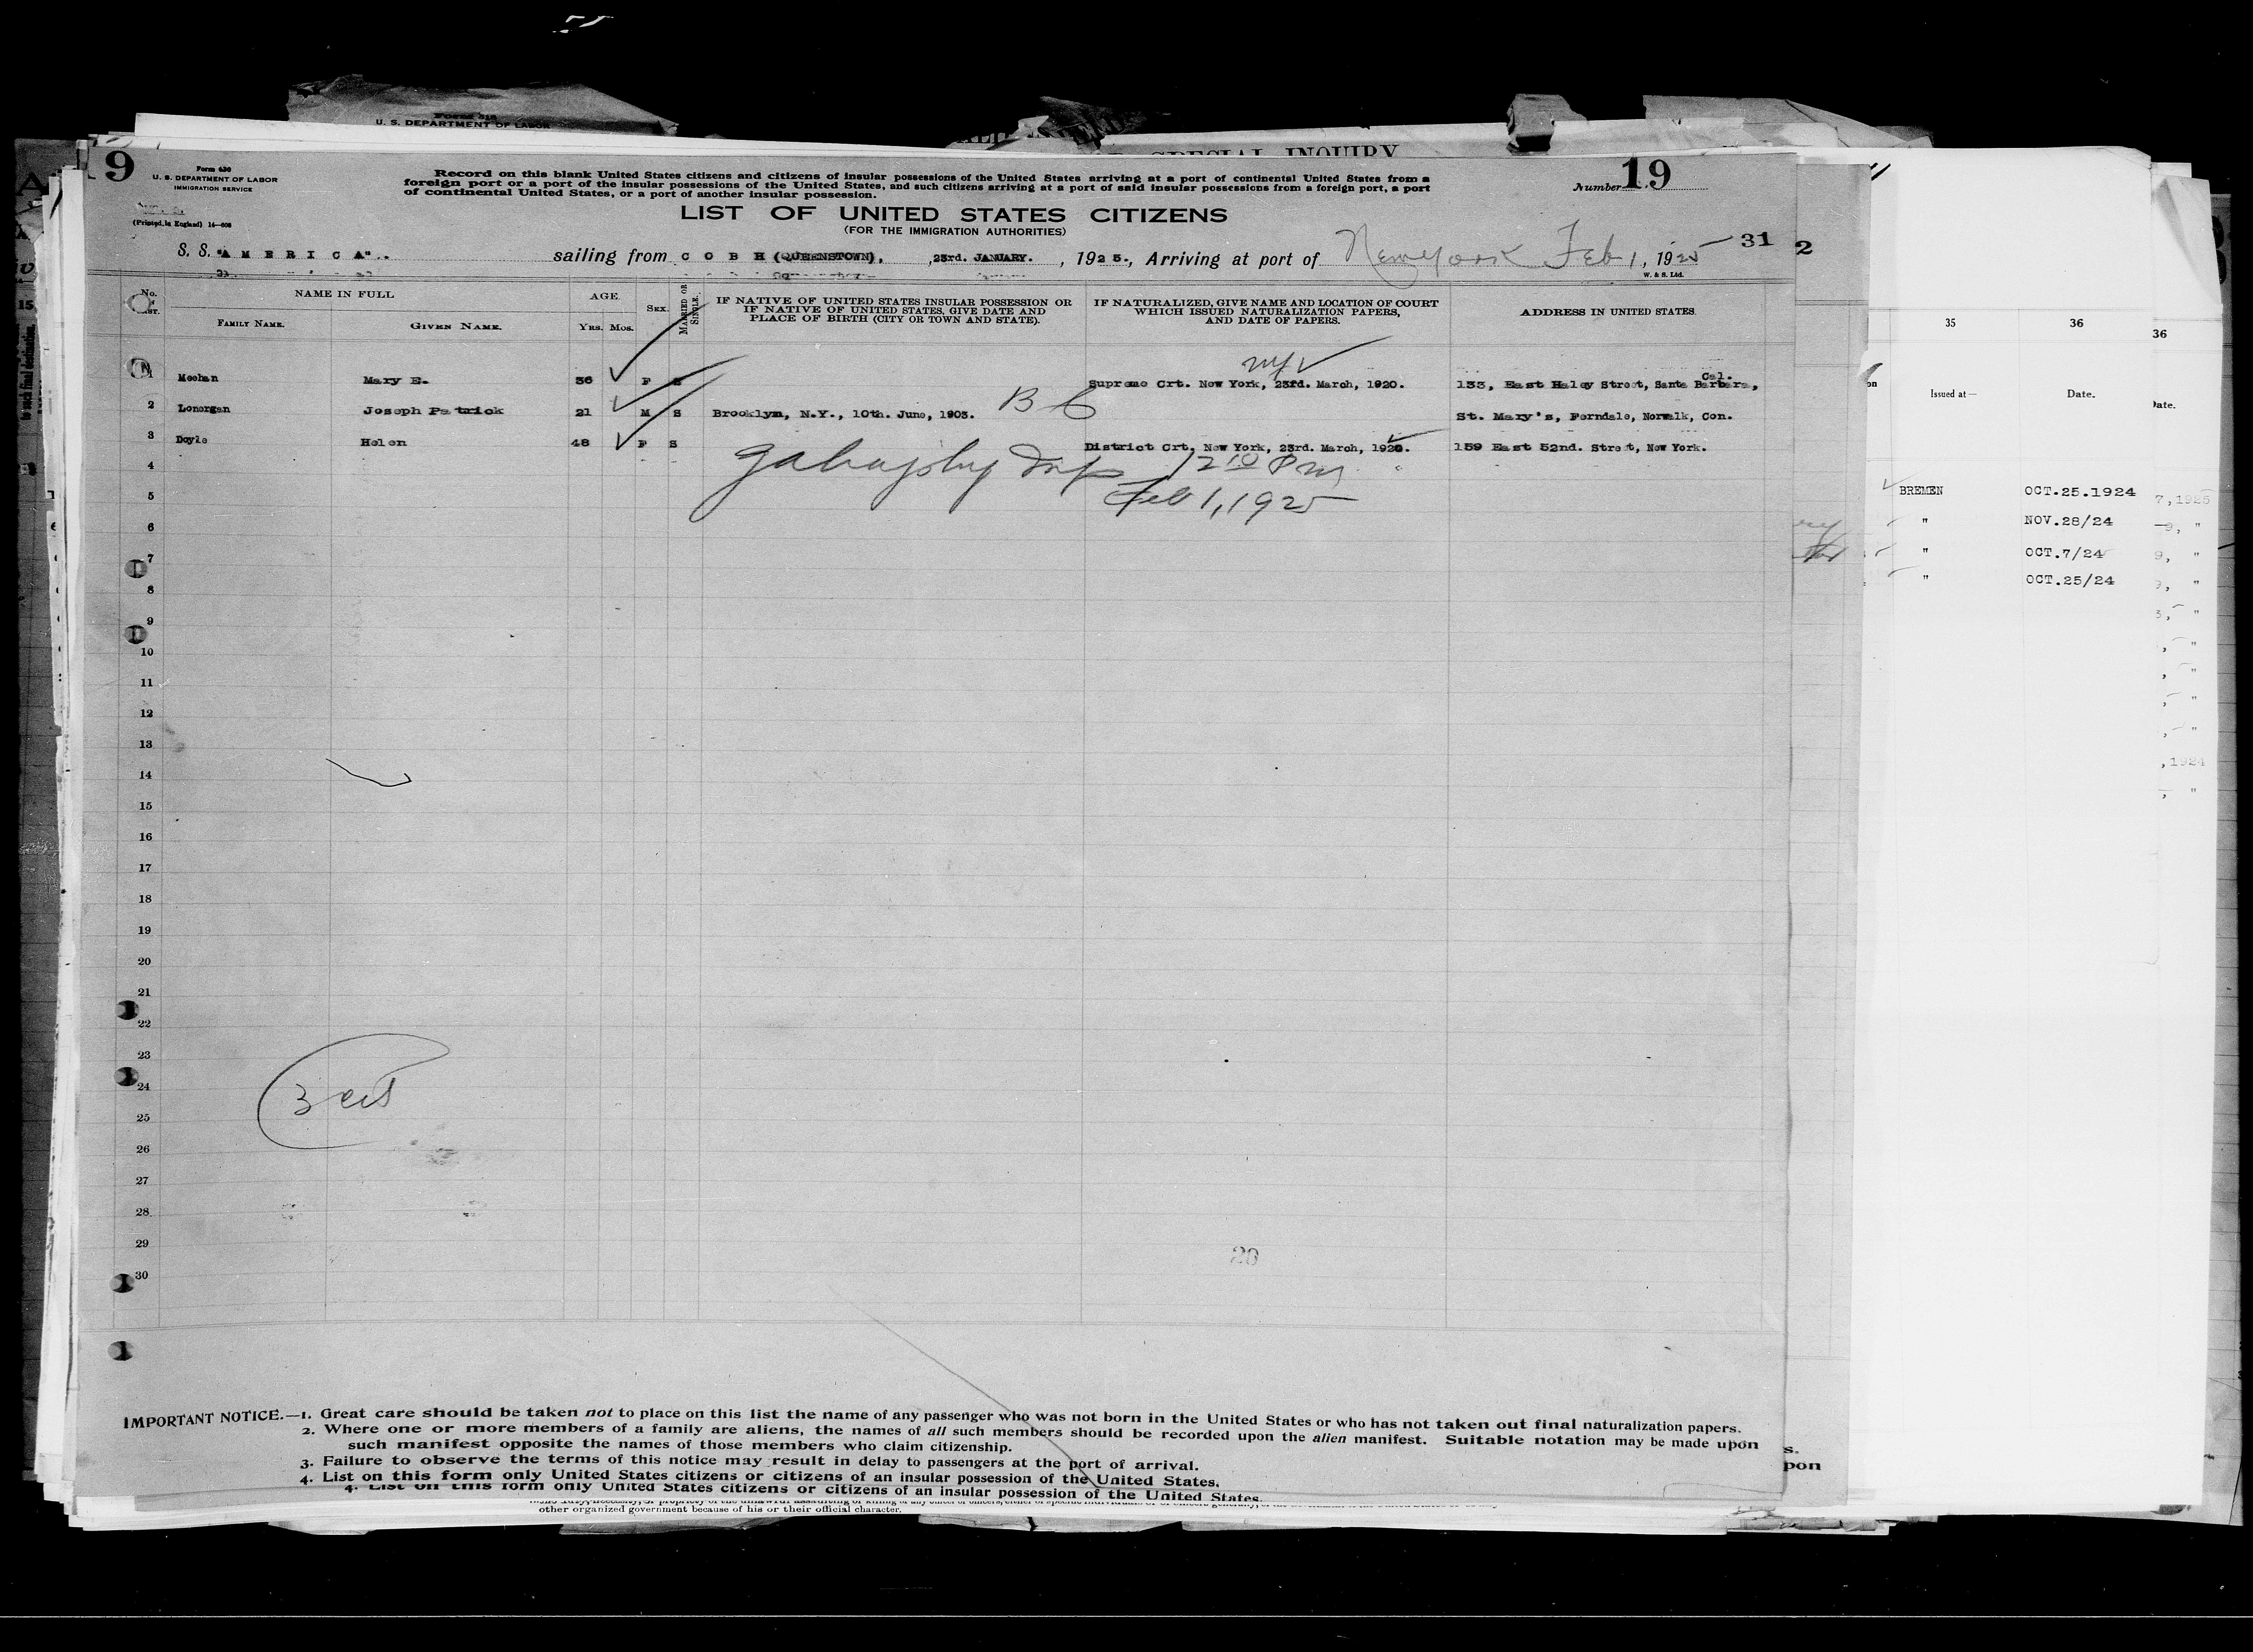 Form 218
U. S. DEPARTMENT OF LABOR
SPECIAL INQUIRY
19
Form 630
U. S. DEPARTMENT OF LABOR
IMMIGRATION SERVICE
(Printed in England) 14—606
Record on this blank United States citizens and citizens of insular possessions of the United States arriving at a port of continental United States from a
foreign port or a port of the insular possessions of the United States, and such citizens arriving at a port of said insular possessions from a foreign port, a port
of continental United States, or a port of another insular possession.
Number 19
LIST OF UNITED STATES CITIZENS
(FOR THE IMMIGRATION AUTHORITIES)
S. S. "AMERICA". sailing from COBH (QUEENSTOWN), 23rd. JANUARY. , 1925., Arriving at port of New York Feb 1, 1925
31
2
W. & S. Ltd.
No.
NAME IN FULL
AGE.
SEX.
MARRIED OR SINGLE.
IF NATIVE OF UNITED STATES INSULAR POSSESSION OR
IF NATIVE OF UNITED STATES, GIVE DATE AND
PLACE OF BIRTH (CITY OR TOWN AND STATE).
IF NATURALIZED, GIVE NAME AND LOCATION OF COURT
WHICH ISSUED NATURALIZATION PAPERS,
AND DATE OF PAPERS.
ADDRESS IN UNITED STATES.
FAMILY NAME. GIVEN NAME. YRS. MOS.
Meehan Mary E. 36 F S Supreme Crt. New York, 23rd. March, 1920. 133, East Haley Street, Santa Barbara, Cal.
2 Lonergan Joseph Patrick 21 M S Brooklyn, N.Y., 10th. June, 1903. B C St. Mary's, Ferndale, Norwalk, Con.
3 Doyle Helen 48 F S District Crt, New York, 23rd. March, 1920. 159 East 52nd. Street, New York.
4 Insp 12 10 P m
5 Feb 1, 1925
6
7
8
9
10
11
12
13
14
15
16
17
18
19
20
21
22
23
24
25
26
27
28
29
30
3 cit
20
IMPORTANT NOTICE.—1. Great care should be taken not to place on this list the name of any passenger who was not born in the United States or who has not taken out final naturalization papers.
2. Where one or more members of a family are aliens, the names of all such members should be recorded upon the alien manifest. Suitable notation may be made upon
such manifest opposite the names of those members who claim citizenship.
3. Failure to observe the terms of this notice may result in delay to passengers at the port of arrival.
4. List on this form only United States citizens or citizens of an insular possession of the United States.
4. List on this form only United States citizens or citizens of an insular possession of the United States.
other organized government because of his or their official character.
s.
pon
35 36
36
Issued at— Date.
Date.
BREMEN OCT.25.1924
" NOV.28/24
" OCT.7/24
" OCT.25/24
7, 1925
, 1924